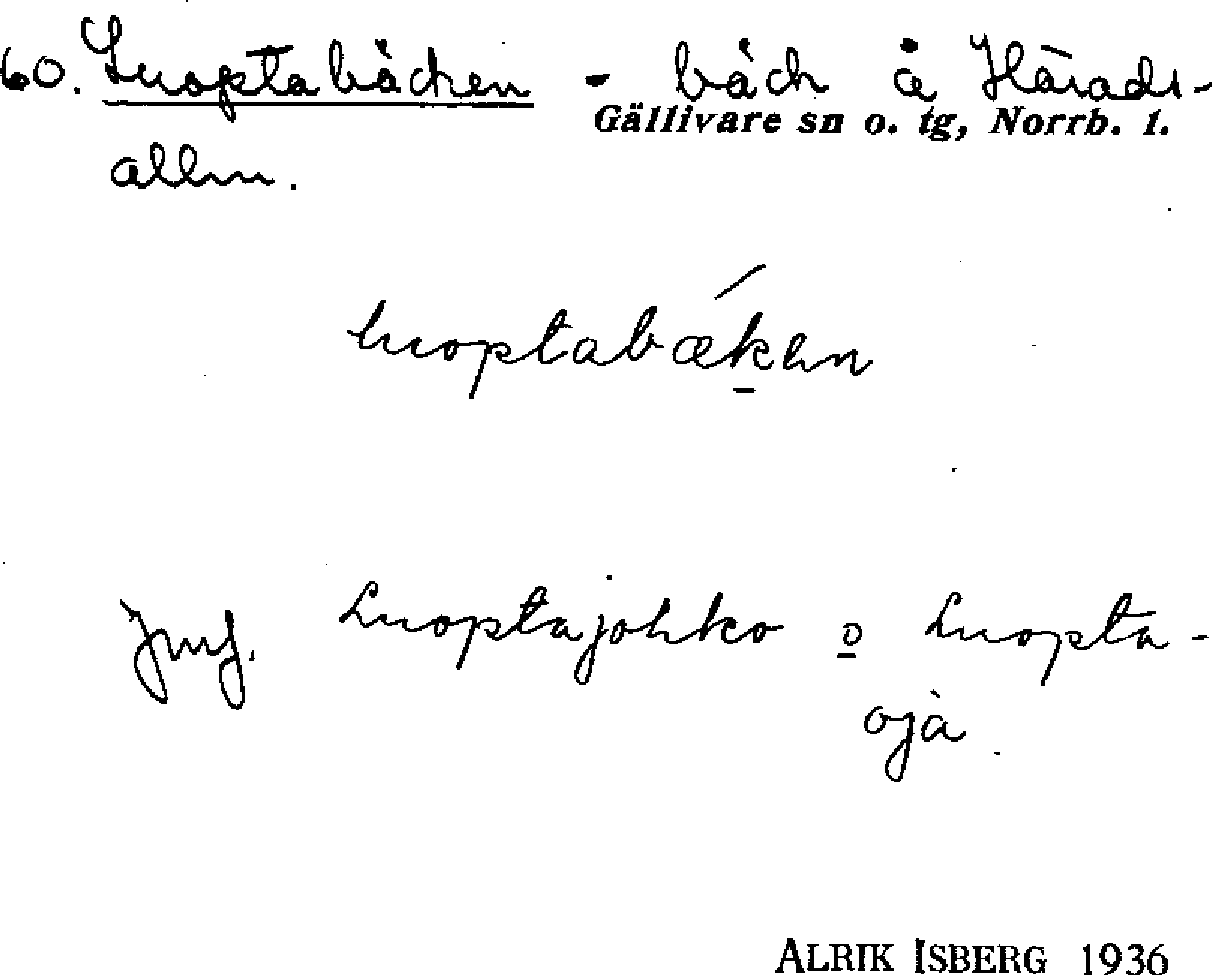 60. Luoptabäcken - bäck å Härads-
Gällivare sn o. tg, Norrb. l.
allm.
luoptabæken
Jmf. Luoptajohko o Luopta-
oja.
ALRIK ISBERG 1936